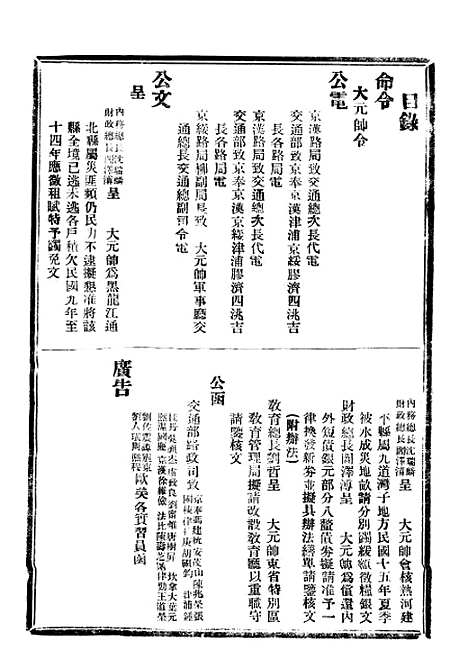 目錄
命令
大元帥令
公電
京漢路局致交通總次長代電
交通部致京奉京漢津浦京綏膠濟四洮吉
長各路局電
京漢路局致交通總次長代電
交通部致京奉京漢京綏津浦膠濟四洮吉
長各路局電
京綏路局柳副局長致 大元帥軍事廳交
通總長交通總副司令電
公文
呈
內務總長沈瑞麟
財政總長閻澤溥
呈 大元帥爲黑龍江通
北縣屬災匪頻仍民力不逮擬懇准將該
縣全境已逃未逃各戶積欠民國九年至
十四年應徵租賦特予蠲免文
內務總長沈瑞麟
財政總長閻澤溥
呈 大元帥會核熱河建
平縣屬九道灣子地方民國十五年夏季
被水成災地畝請分別蠲緩額徵糧銀文
財政總長閻澤溥呈 大元帥爲償還內
外短債銀元部分八釐債券擬請准予一
律換發新券並擬具辦法繕單請鑒核文
(附辦法)
教育總長劉哲呈 大元帥東省特別區
教育管理局擬請改設教育廳以重職守
請鑒核文
公函
交通部路政司致
歐美各實習員函
廣告